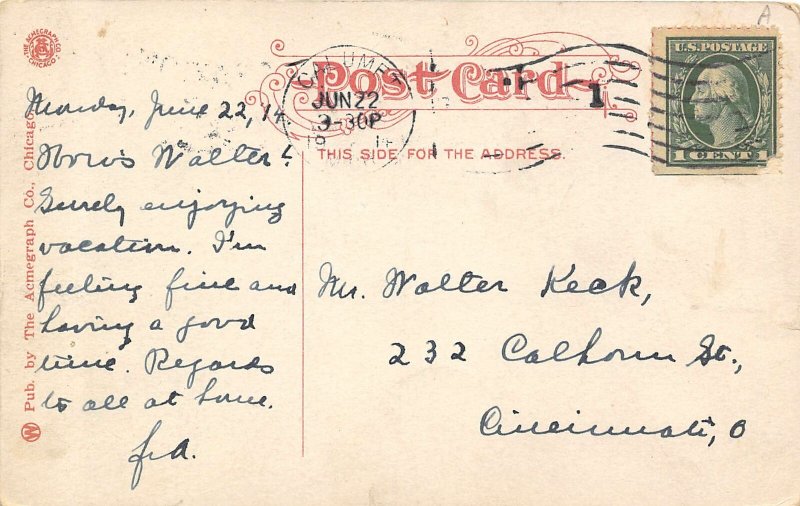 THE ACMEGRAPH CO.
CHICAGO
Post Card
THIS SIDE FOR THE ADDRESS.
CALUMET
JUN 22
3-30P
1
U.S. POSTAGE
1 CENT 1
A
Monday, June 22, 14
How's Walter!
Surely enjoying
vacation. I'm
feeling fine and
having a good
time. Regards
to all at home.
Mr. Walter Keck,
232 Calhoun St.,
Cincinnati, O
W Pub. by The Acmegraph Co., Chicago